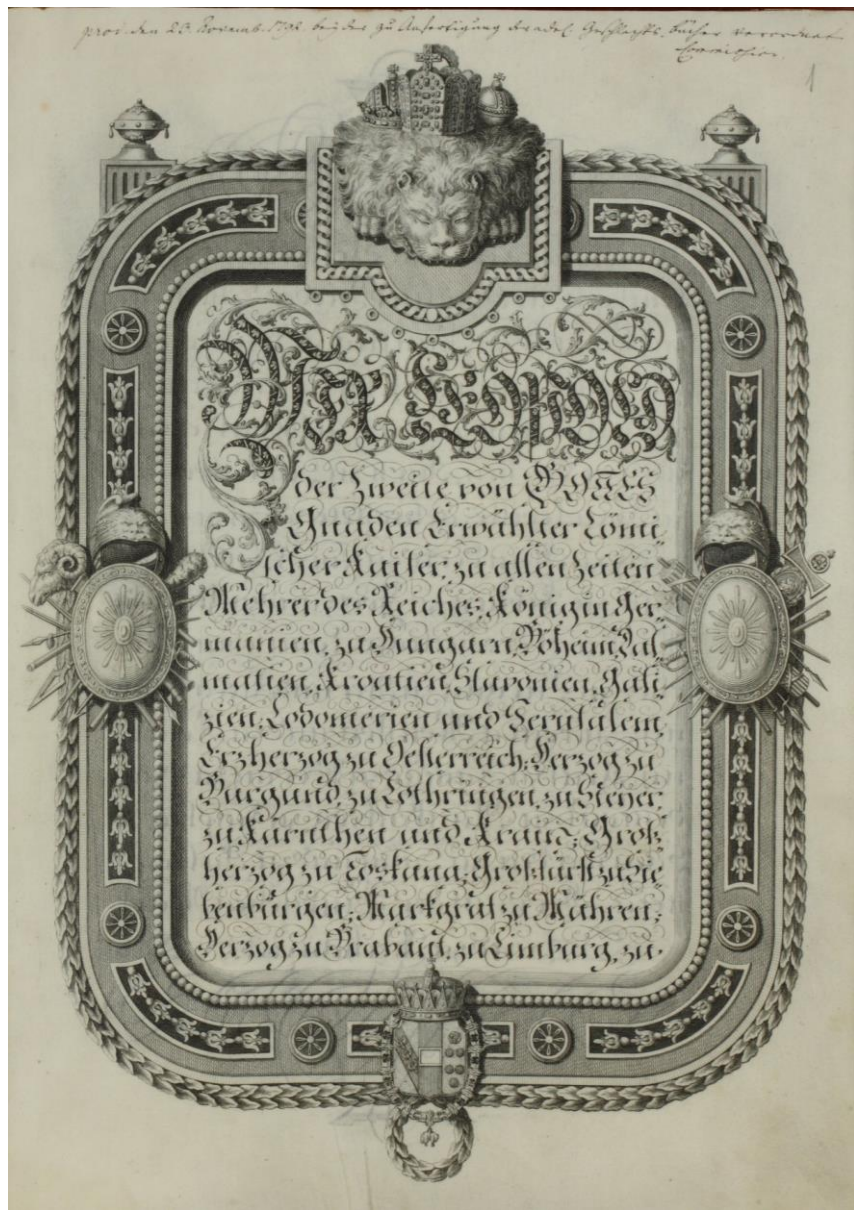 prod. den 20. Novemb. 1792 bey der zu Anfertigung der adel. Geschlechts-bücher verordnet.
Commission.
1
Wir Leopold
der Zweite von GOTTES
Gnaden Erwählter Römi-
scher Kaiser, zu allen Zeiten
Mehrer des Reiches, König in Ger-
manien, zu Hungarn, Böheim, Dal-
matien, Kroatien, Slavonien, Gali-
zien, Lodomerien und Jerusalem,
Erzherzog zu Oesterreich; Herzog zu
Burgund, zu Lothringen, zu Steyer,
zu Kärnthen und Krain; Groß-
herzog zu Toskana; Großfürst zu Sie-
benbürgen; Markgraf zu Mähren;
Herzog zu Brabant, zu Limburg, zu